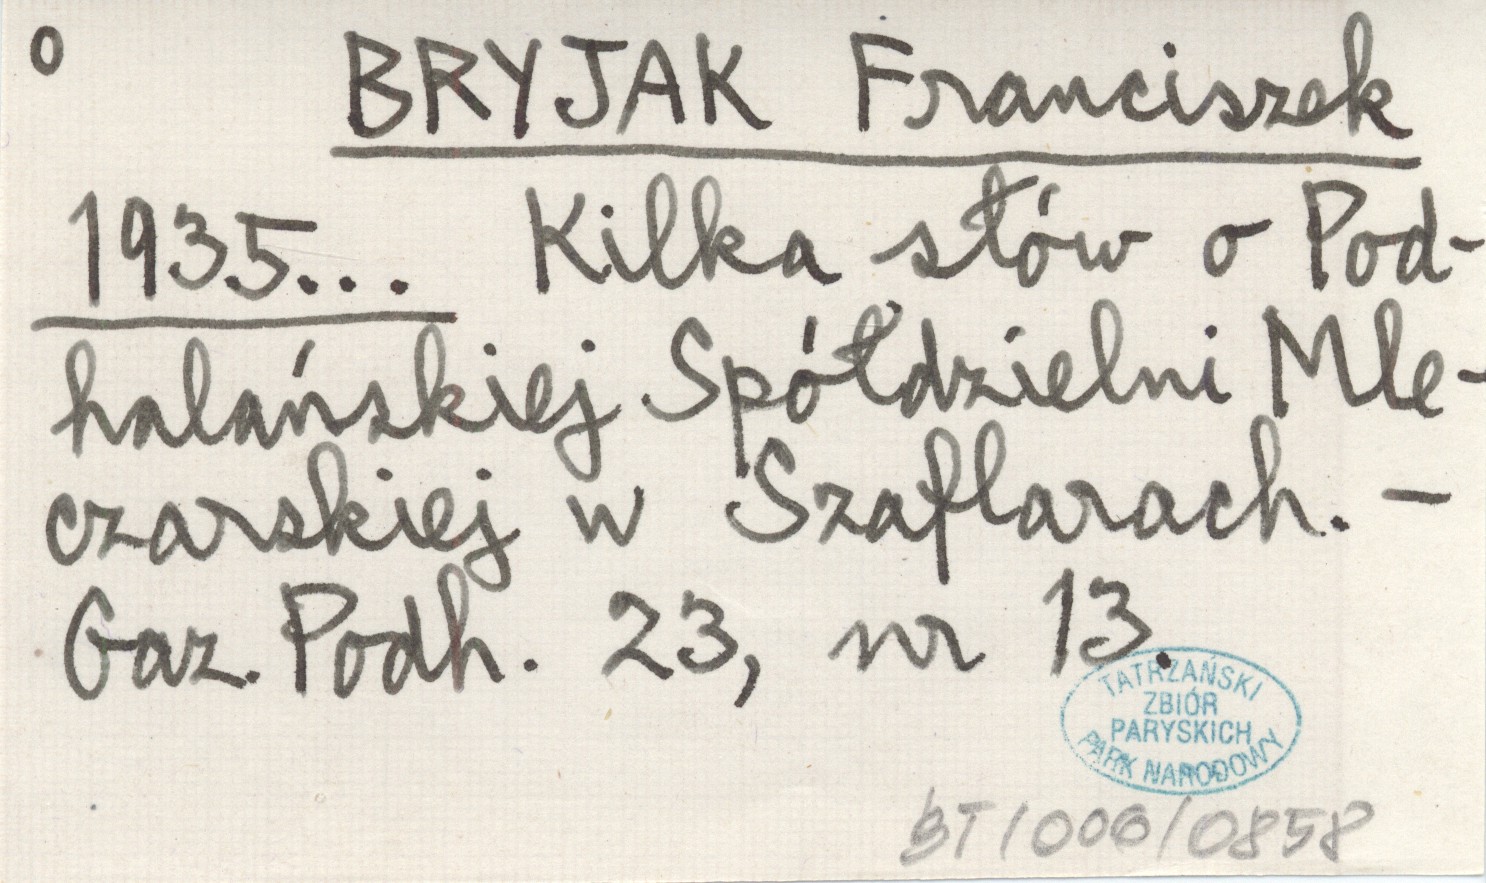 o BRYJAK Franciszek
1935... Kilka słów o Pod-
halańskiej Spółdzielni Mle-
czarskiej w Szaflarach. –
Gaz. Podh. 23, nr 13.
TATRZAŃSKI
ZBIÓR
PARYSKICH
PARK NARODOWY
BT/006/0858